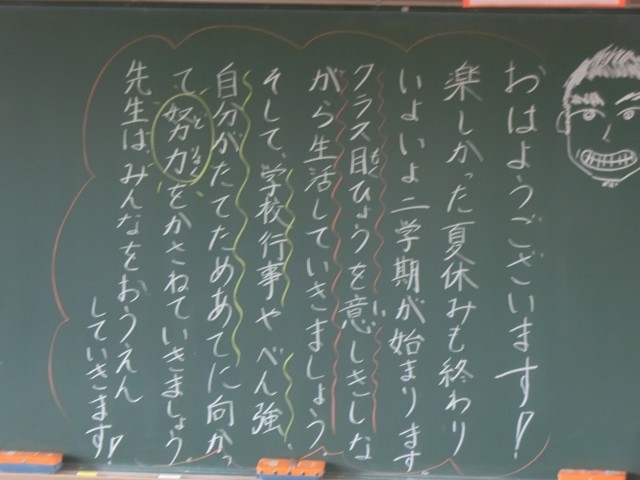 おはようございます!
楽しかった夏休みも終わり
いよいよ二学期が始まります。
クラス目ひょうを意しきしな
もく
い
がら生活していきましょう。
そして、学校行事やべん強、
自分がたてためあてに向かっ
て努力をかさねていきましょう。
どりょく
先生は、みんなをおうえん
していきます!